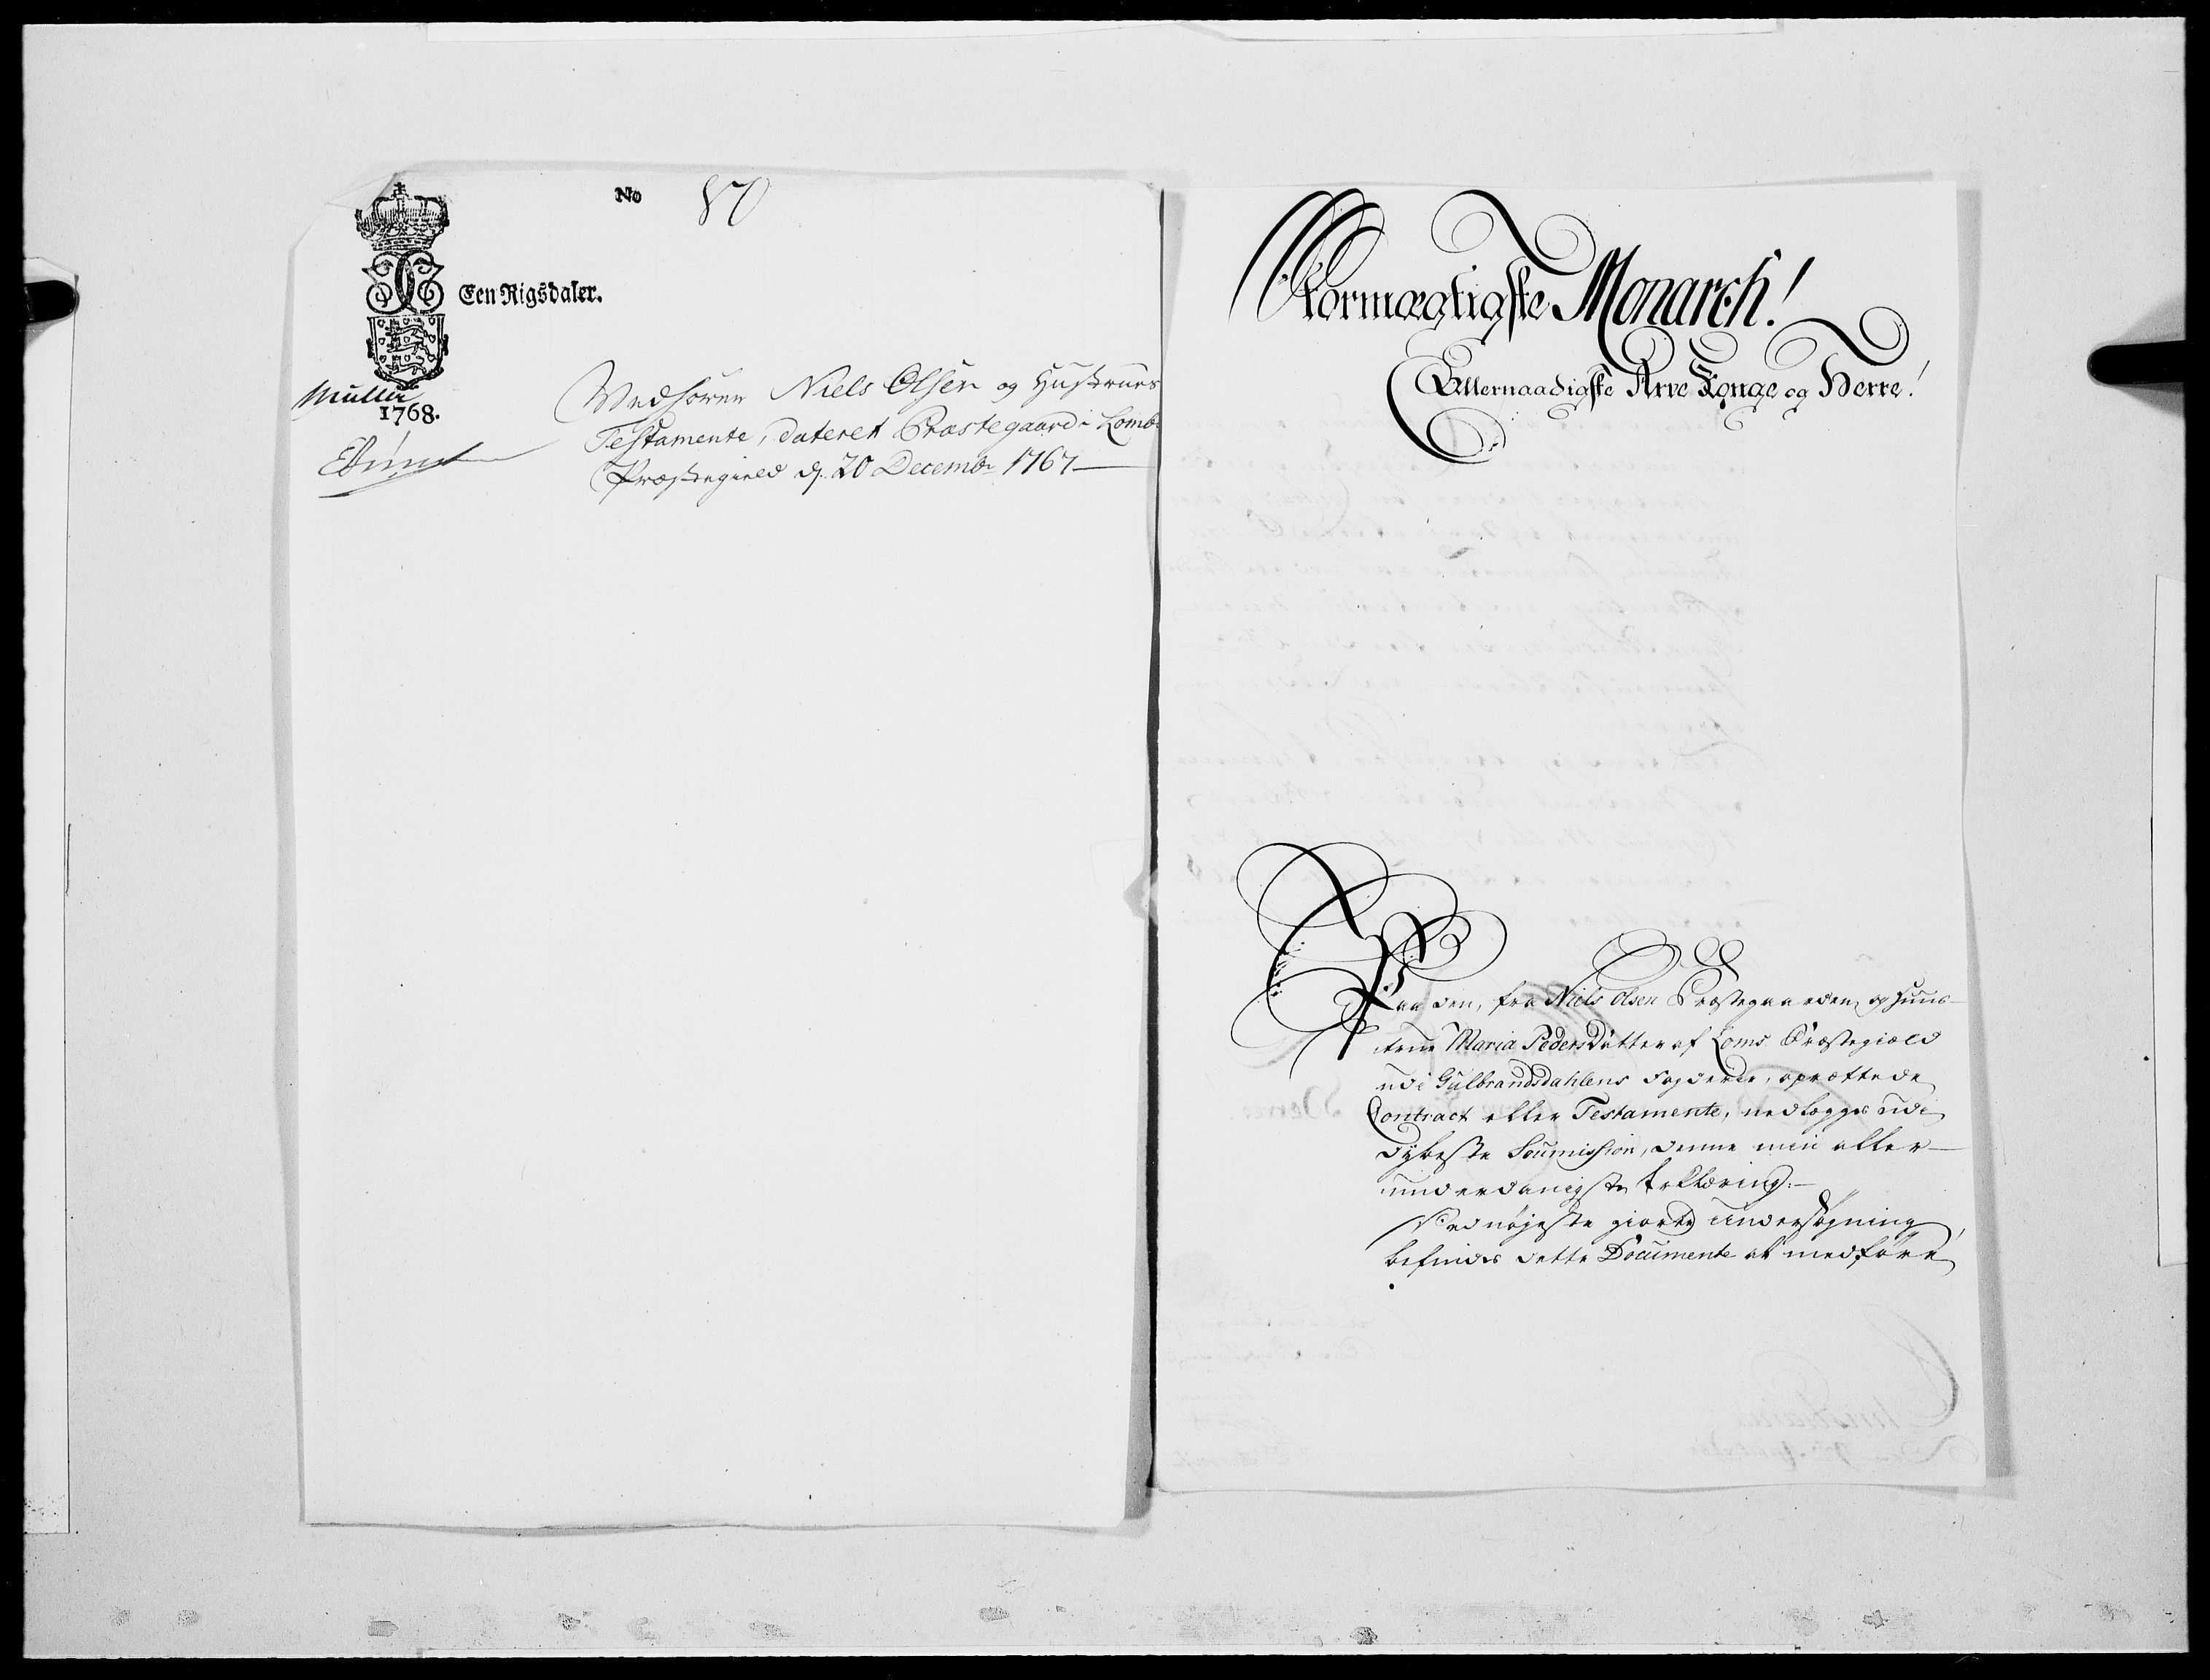 No 80
Een Rigsdaler.
Müller
1768.
Vedhører Niels Olsen og Hustrues
Testamente, dateret Præstegaard i Lomb
Præstegield d. 20 Decembr 1767
Stormægtigste Monarch!
Allernaadigste Arve Konge og Herre!
Paa den, fra Niels Olsen Præstegaarden og Huus-
true Maria Peders Datter af Loms Præstegiæld
udi Gulbrandsdahlens Fogderie, oprættede
Contract eller Testamente, nedlegges udi
dybeste Soumission, denne min aller-
underdanigste Erklæring:-
Ved nøyeste giorte Undersøgning,
befindes dette Documente at medføre